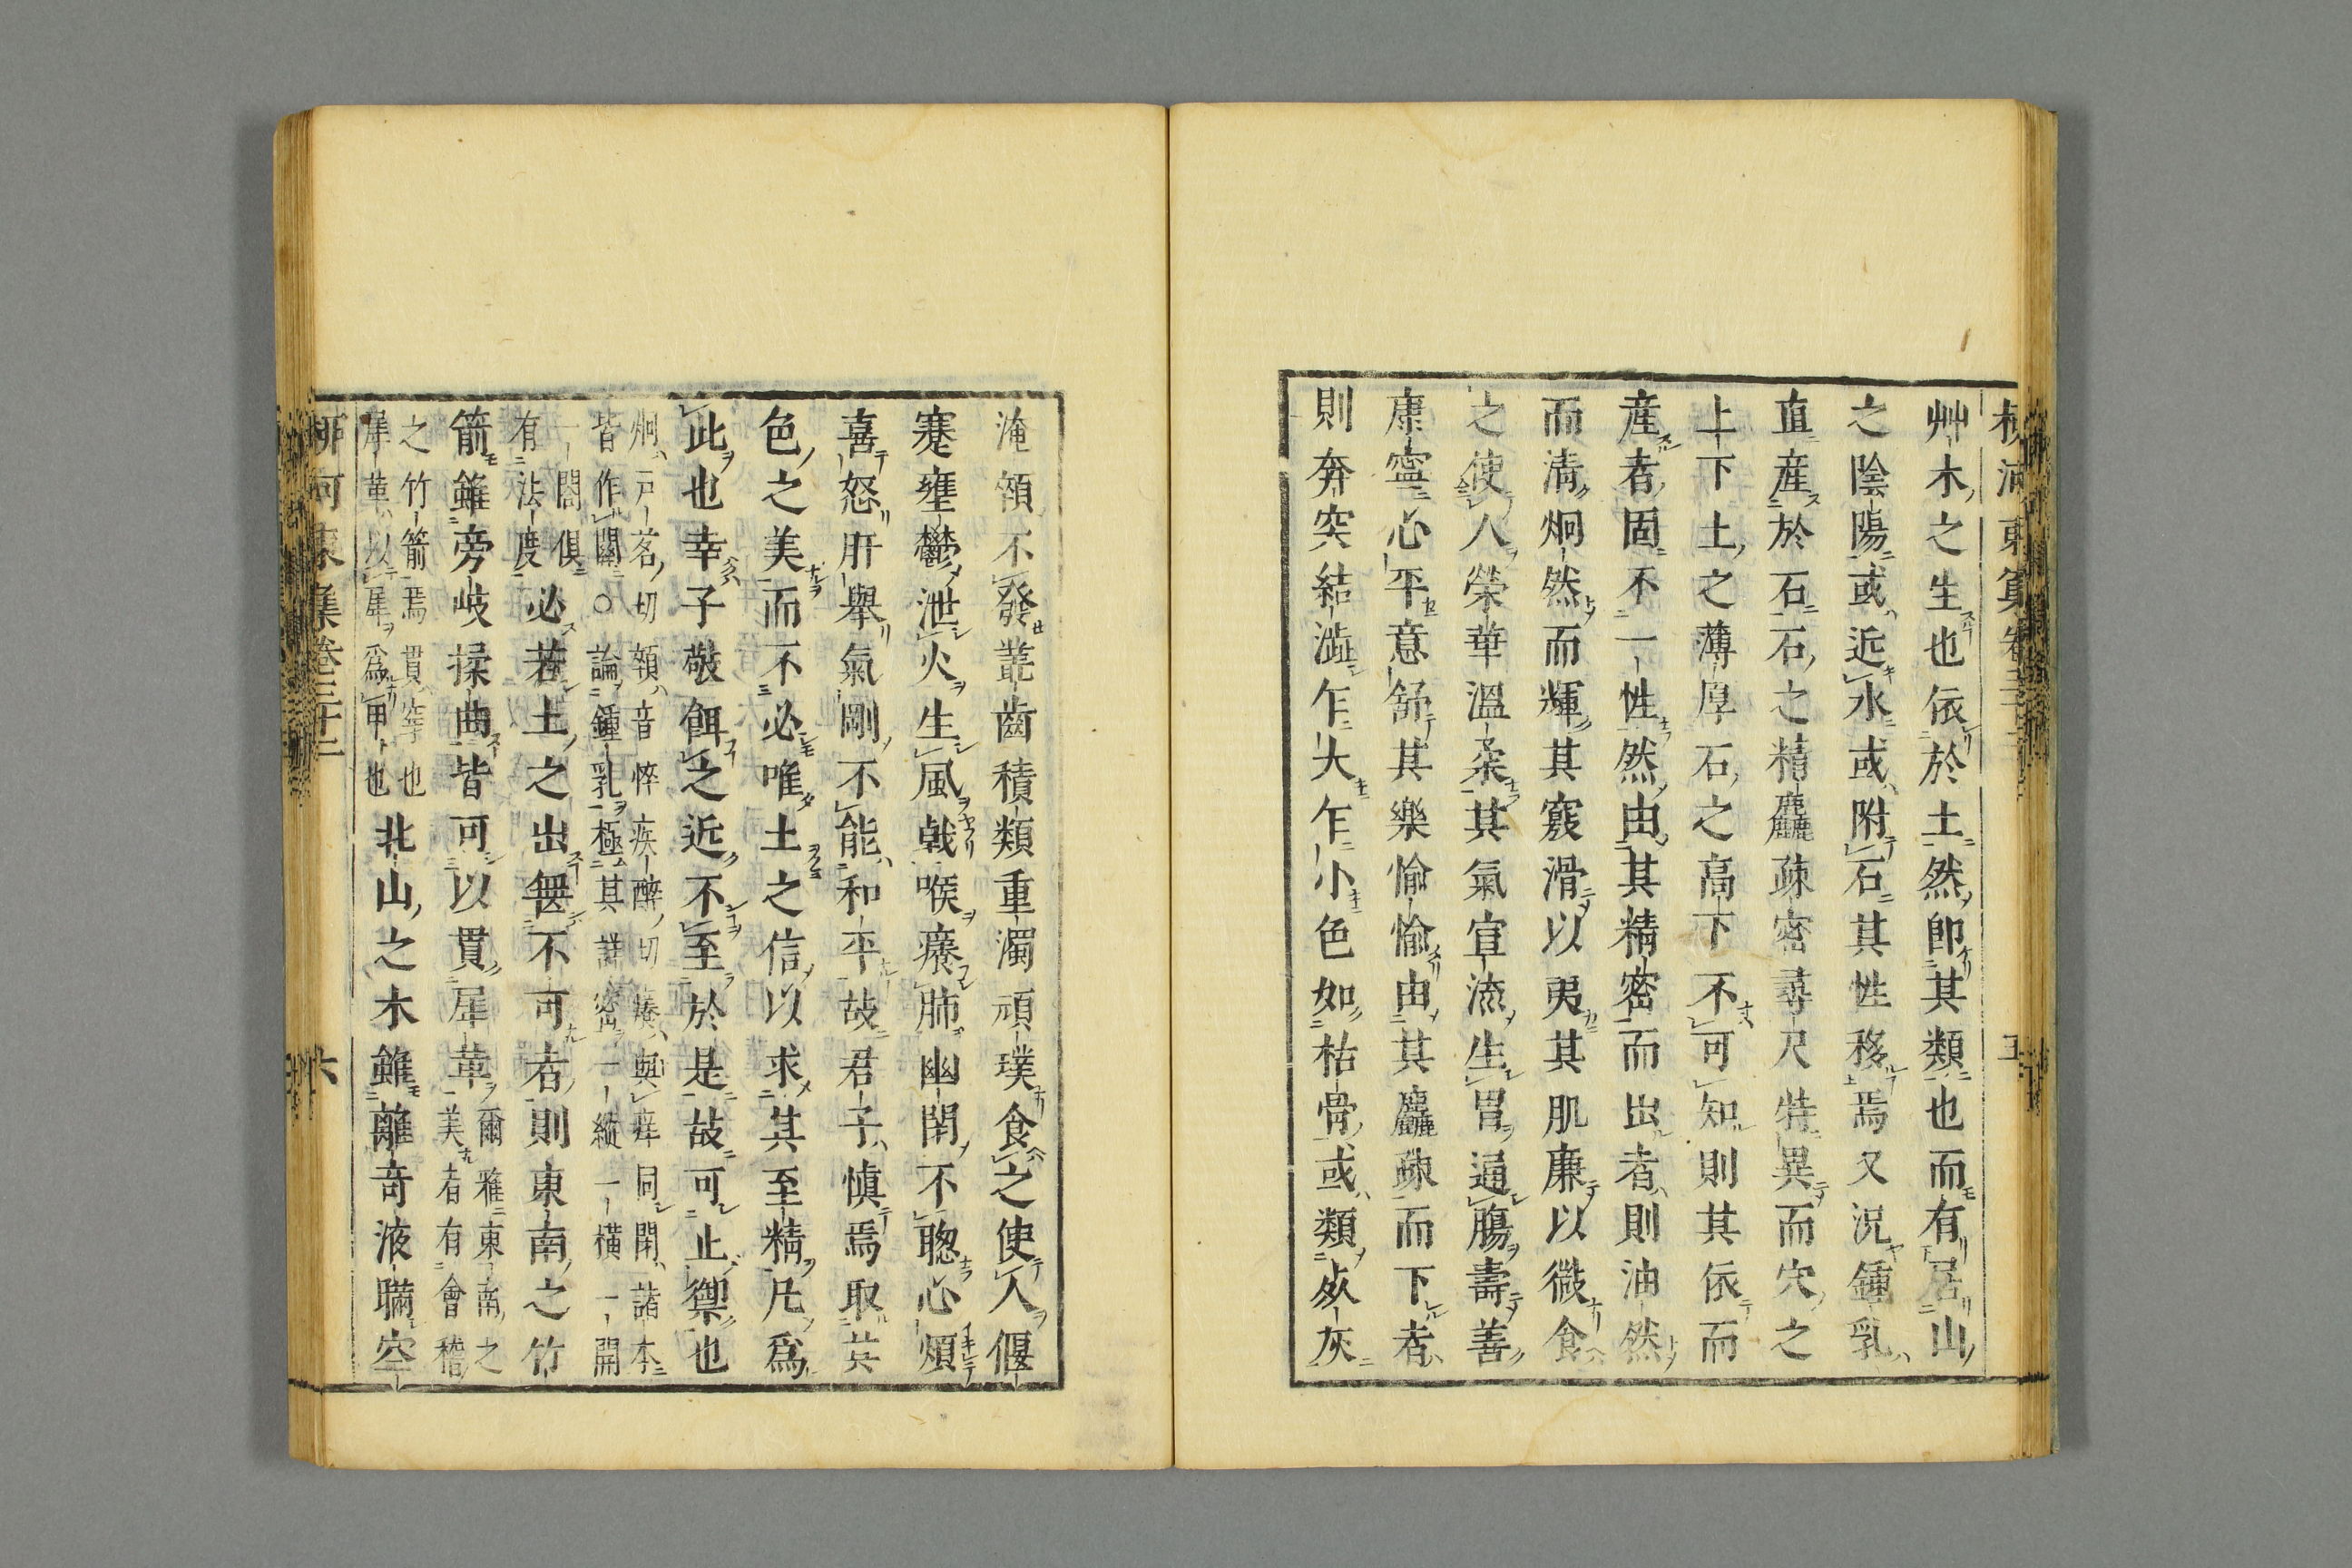 柳河東集卷三十二 五
艸木之生也依於土然即其類也而有居山
之陰陽或近水或附石其性移焉又況鍾乳
直產於石石之精麤疎密尋尺特異而穴之
上下土之薄厚石之高下不可知則其依而
產者固不一性然由其精密而出者則油然
而清炯然而輝其竅滑以夷其肌廉以微食
之使人榮華溫柔其氣宣流生胃通腸壽善
康寧心平意舒其樂愉愉由其麤疎而下者
則奔突結澁乍大乍小色如枯骨或類死灰
淹顇不發叢齒積纇重濁頑璞食之使人偃
蹇壅鬱泄火生風戟喉癢肺幽關不聰心煩
喜怒肝舉氣剛不能和平故君子慎焉取其
色之美而不必唯土之信以求其至精凡為
此也幸子敬餌之近不至於是故可止禦也
炯戶茗切顇音悴疾醉切癢與痒同關諸本
皆作闗○論鍾乳極其詳密一縱一橫一開
一闔俱
有法度
必若土之出無不可者則東南之竹
箭雖旁岐揉曲皆可以貫犀革
爾雅東南之
美者有會稽
之竹箭焉貫穿也
犀革以犀為甲也
北山之木雖離奇液瞞空
柳河東集卷三十二 六